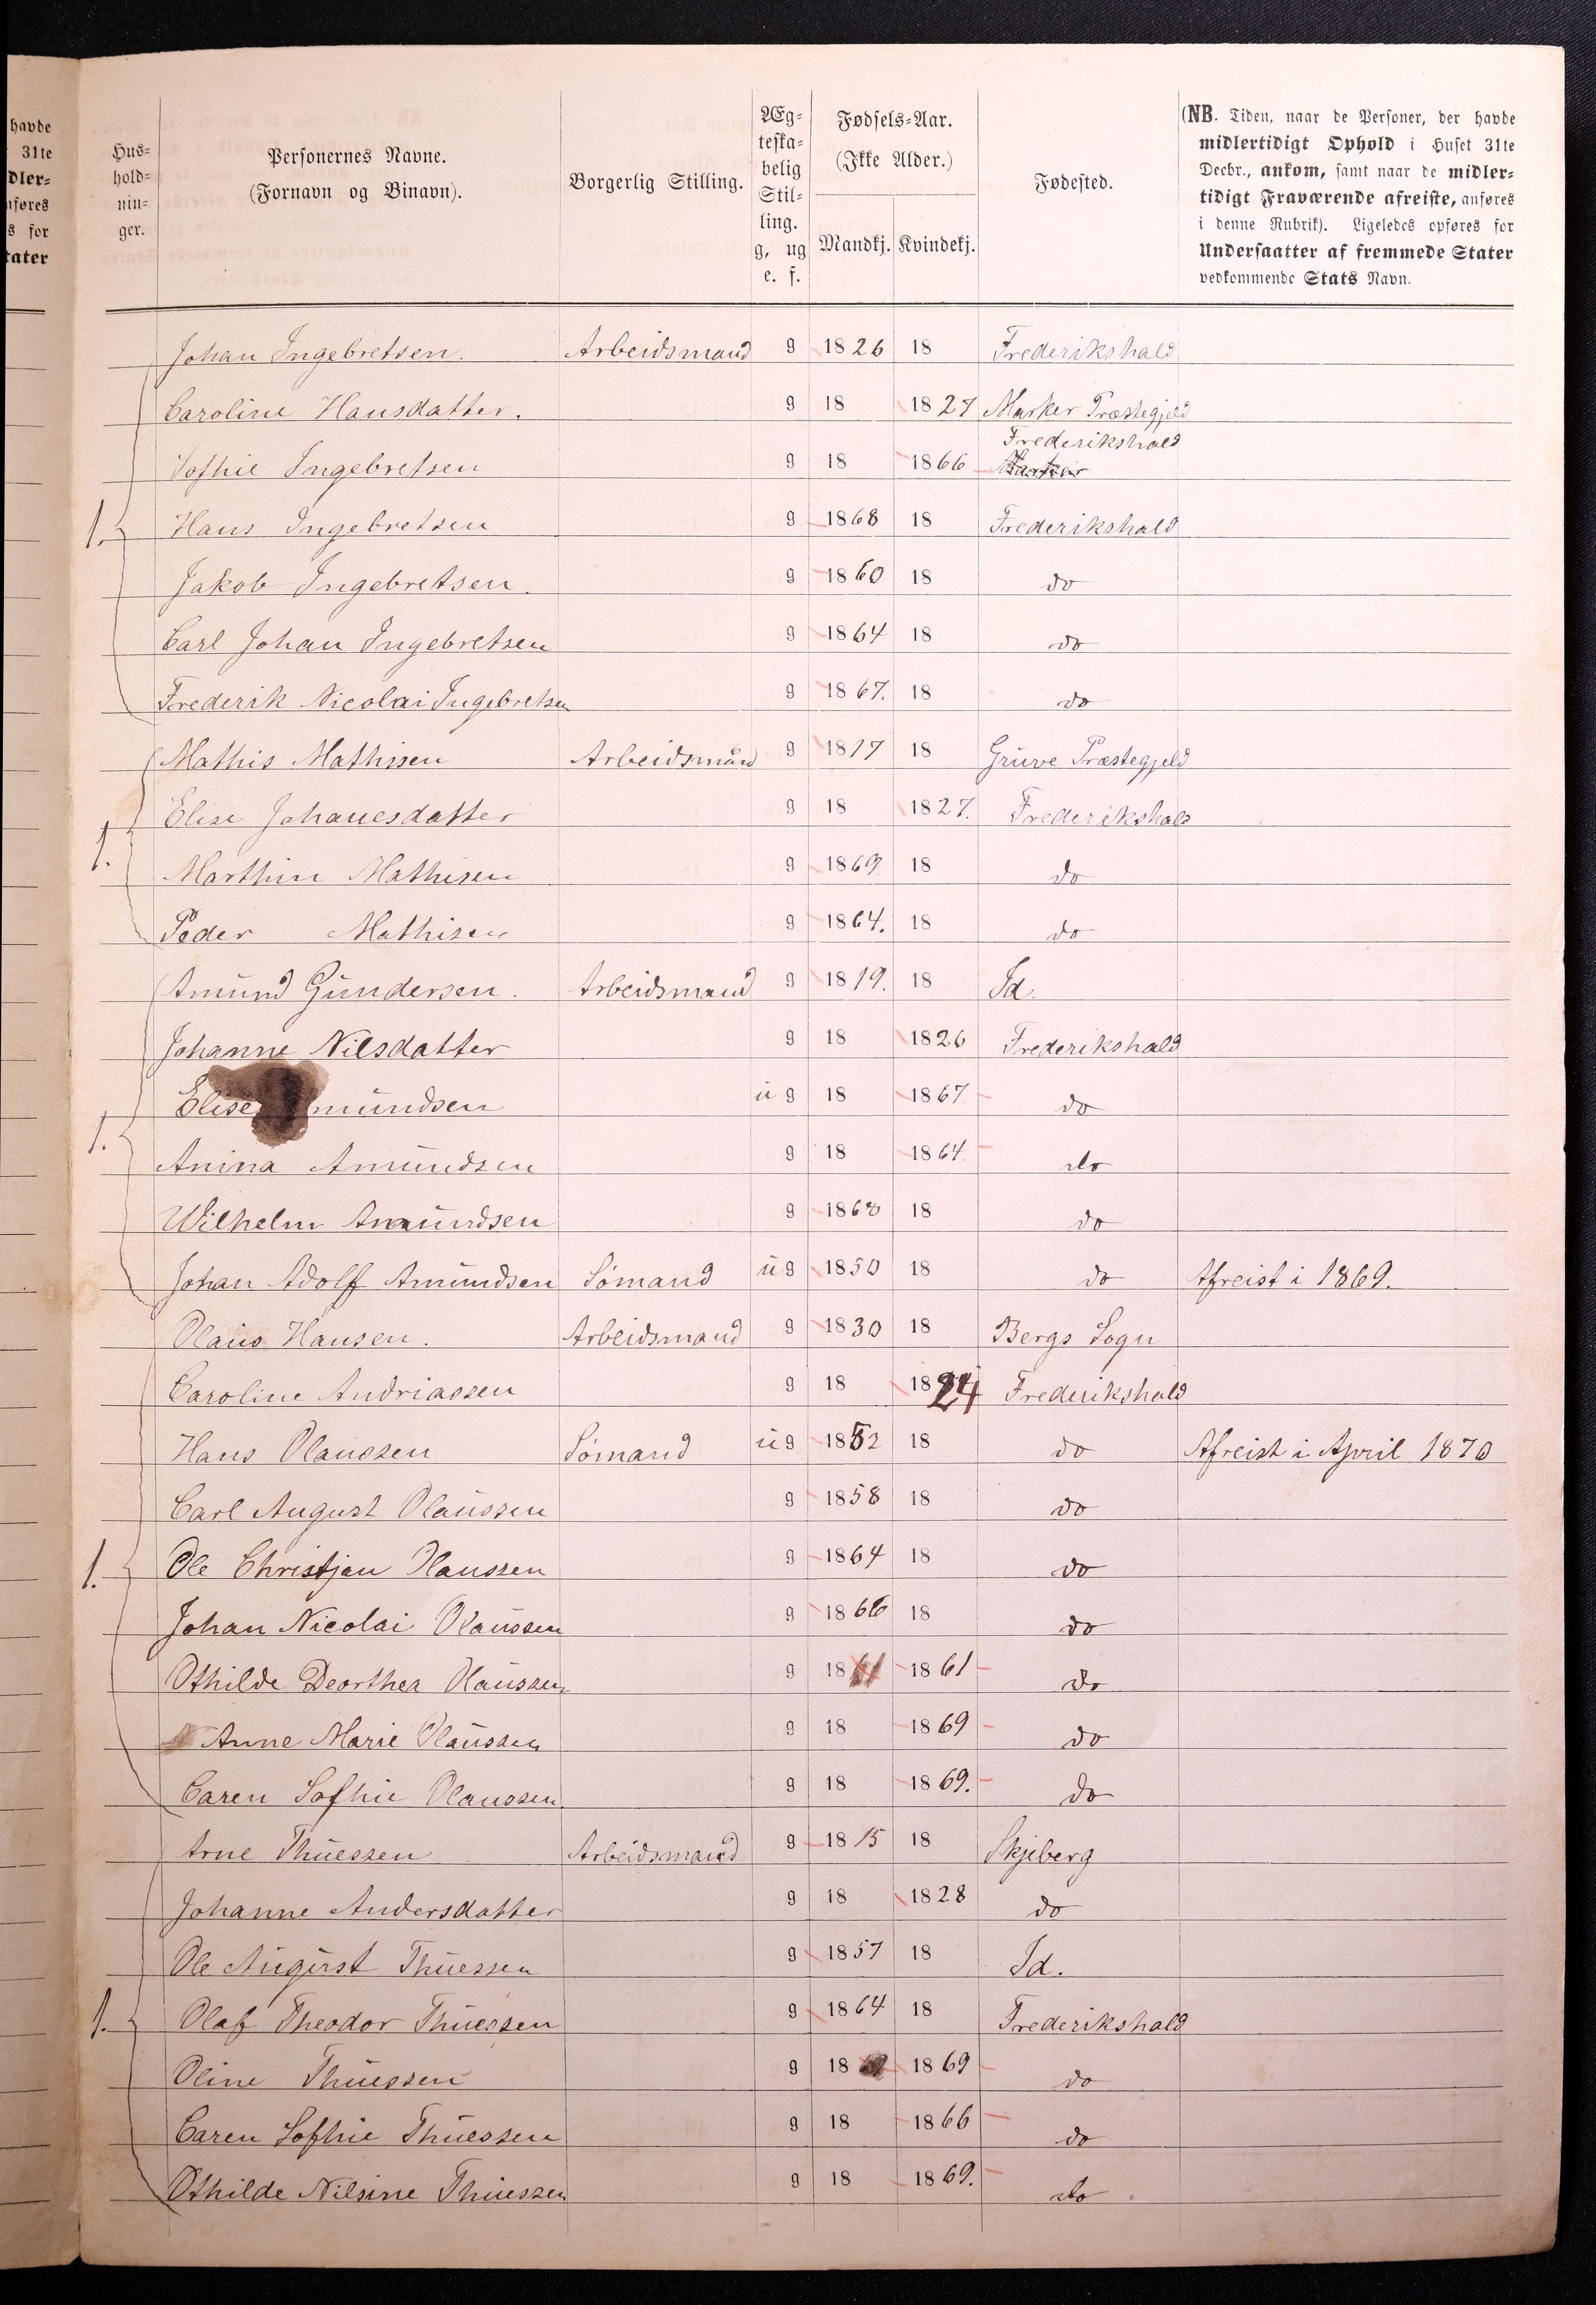 havde
31te
dler=
nføres
s for
tater
Hus=
hold=
nin=
ger.
Personernes Navne.
(Fornavn og Binavn).
Borgerlig Stilling.
Æg=
teska=
belig
Stil=
ling.
g, ug
e. f.
Fødsels=Aar.
(Ikke Alder.)
Mandkj. Kvindekj.
Fødested.
(NB. Tiden, naar de Personer, der havde
midlertidigt Ophold i Huset 31te
Decbr., ankom, samt naar de midler=
tidigt Fraværende afreiste, anføres
i denne Rubrik). Ligeledes opføres for
Undersaatter af fremmede Stater
vedkommende Stats Navn.
Johan Ingebretsen. Arbeidsmand g 1826 18 Frederikshald
Caroline Hansdatter. g 18 1827 Marker Præstegjeld
Frederikshald
Sofhie Ingebretsen g 18 1866 Marker
1. Hans Ingebretsen g 1868 18 Frederikshald
Jakob Ingebretsen. g 1860 18 do
Carl Johan Ingebretsen g 1864 18 do
Frederik Nicolai Ingebretsen g 1867. 18 do
Mathis Mathissen Arbeidsmand g 1817 18 Gruve Præstegjeld
Elise Johanesdatter g 18 1827. Frederikshald
1. Marthin Mathisen g 1869 18 do
Peder Mathisen g 1864. 18 do
Amund Gundersen. Arbeidsmand g 1819. 18 Id.
Johanne Nilsdatter g 18 1826 Frederikshald
Elise mundsen u g 18 1867 do
1. Anina Amundsen g 18 1864. do
Wilhelm Amundsen g 1860 18 do
Johan Adolf Amundsen Sømand u g 1850 18 do Afreist i 1869.
Olaus Hansen. Arbeidsmand g 1830 18 Bergs Sogn
Caroline Andriassen g 18 1824 Frederikshald
Hans Olaussen Sømand u g 1852 18 do Afreist i April 1870
Carl August Olaussen g 1858 18 do
1. Ole Christjan Olaussen g 1864 18 do
Johan Nicolai Olaussen g 1866 18 do
Othilde Deorthea Olaussen g 1861 1861 do
Anne Marie Olaussen g 18 1869 do
Caren Sofhie Olaussen g 18 1869. do
Arne Thuessen Arbeidsmand g 1815 18 Skjeberg
Johanne Andersdatter g 18 1828 do
Ole August Thuessen g 1857 18 Id.
1. Olaf Theodor Thuessen g 1864 18 Frederikshald
Oline Thuessen g 18 1869 do
Caren Sofhie Thuessen g 18 1866 do
Othilde Nilsine Thuessen g 18 1869. do